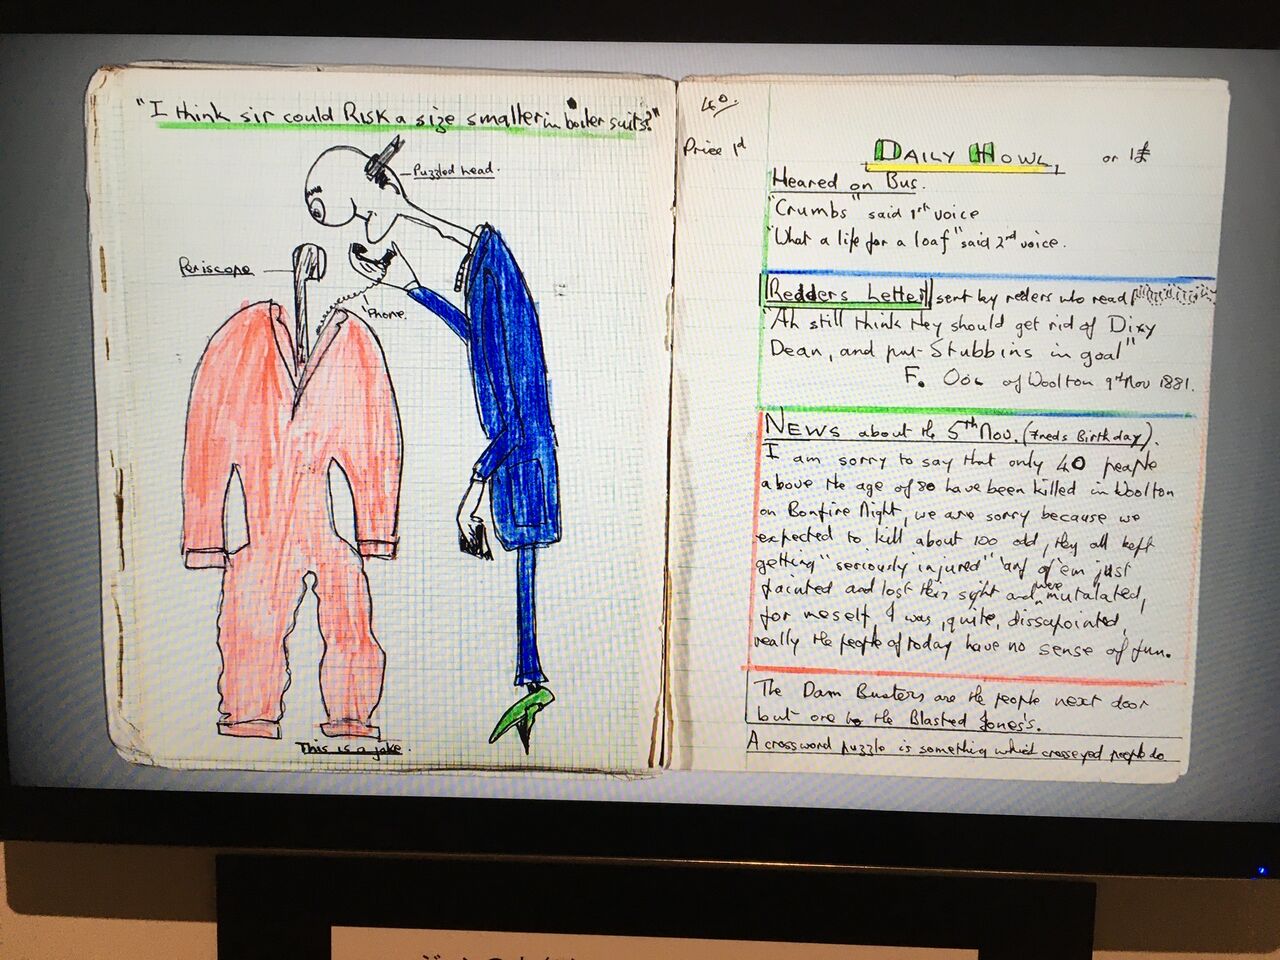 "I think sir could Risk a size smaller in boiler suits?"
Puzzled head.
Periscope
'Phone.
This is a joke.
40.
Price 1d
DAILY HOWL,
or 1£
Heared on Bus.
"Crumbs" said 1st voice
"What a life for a loaf" said 2nd voice.
Redders Letter sent by redders who read
"Ah still think they should get rid of Dixy
Dean, and put Stubbins in goal"
F. of Woolton 9th Nov 1881.
NEWS about the 5th Nov. (Freds Birthday).
I am sorry to say that only 40 people
above the age of 80 have been killed in Woolton
on Bonfire Night, we are sorry because we
expected to kill about 100 odd, they all kept
getting "seriously injured" any of 'em just
fainted and lost their sight and were mutalated,
for meself I was, quite, dissapointed,
really the people of today have no sense of fun.
The Dam Busters are the people next door
but one to the Blasted Jones's.
A crossword puzzle is something which crosseyed people do